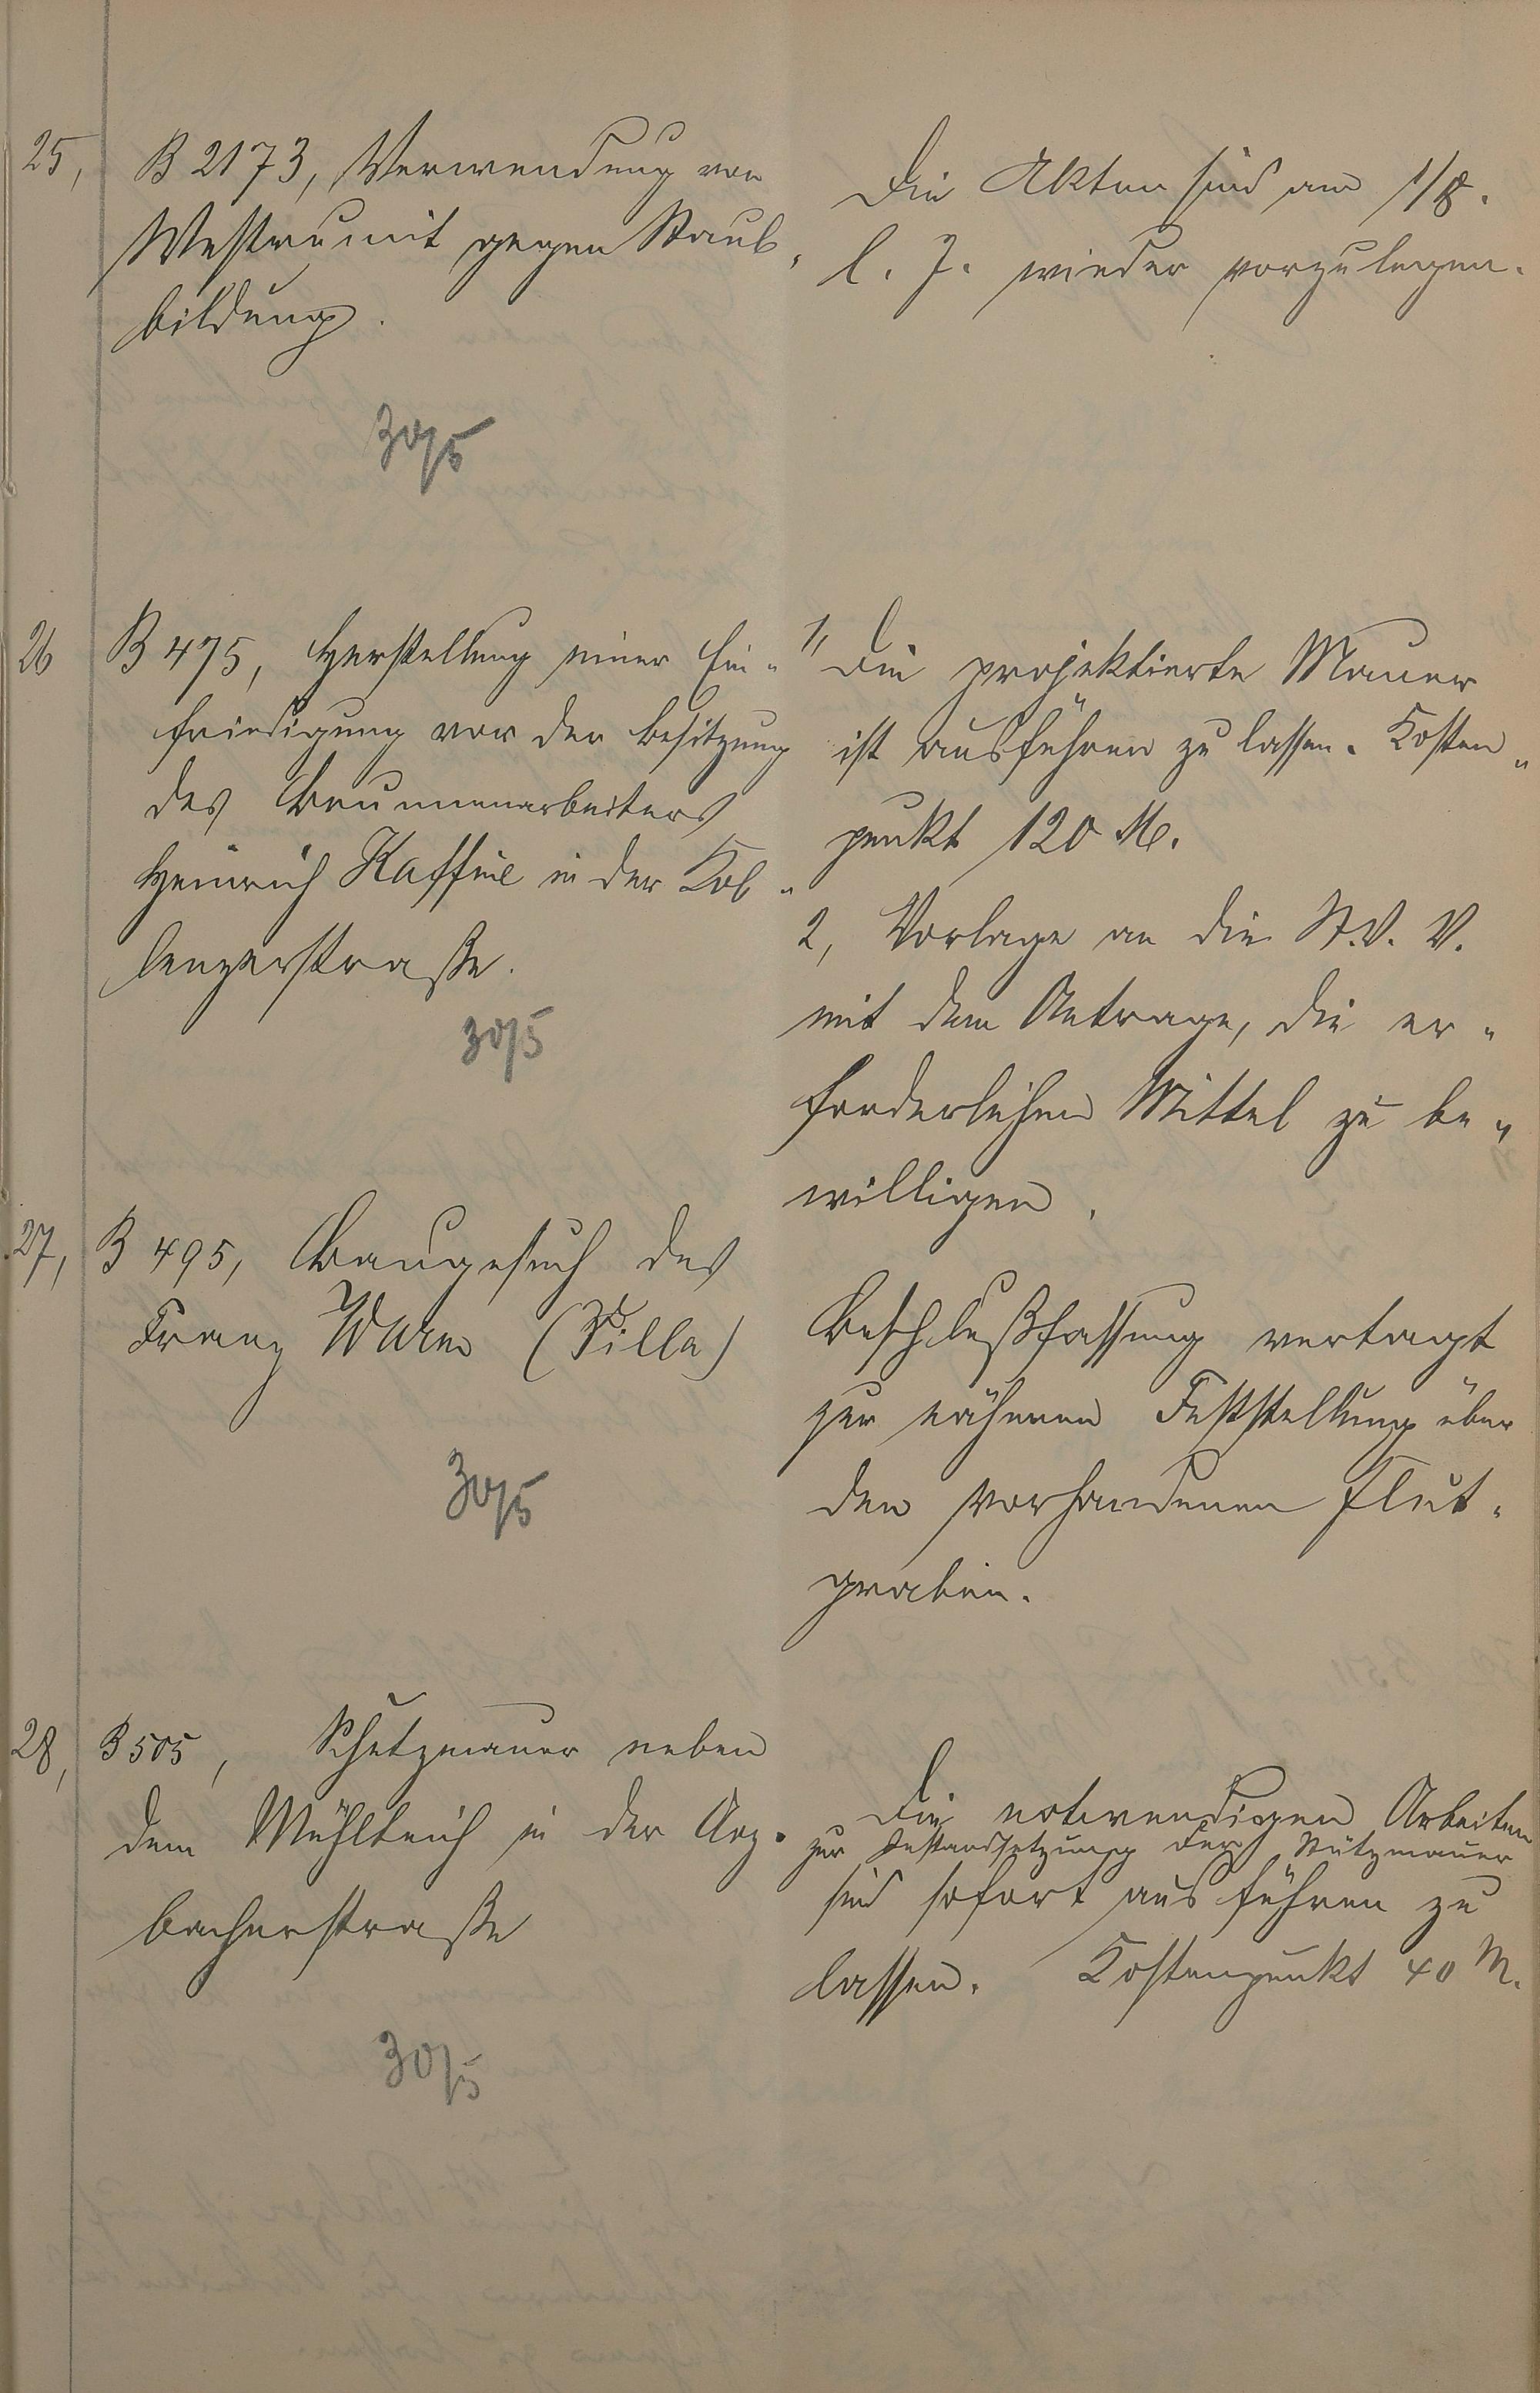 25, B 2173, Verwendung von
Westrumit gegen Staub-
bildung.
30/5
Die Akten sind am 1/8.
l. J. wieder vorzulegen.
26 B 475, Herstellung einer Ein-
friedigung vor der Besitzung
des Brunnenarbeiters
Heinrich Kaffine in der Kob-
lenzerstraße.
30/5
1, Die projektierte Mauer
ist ausführen zu lassen. Kosten-
punkt 120 M.
2, Vorlage an die St. V. V.
mit dem Antrage, die er-
forderlichen Mittel zu be-
willigen.
27, B 495, Baugesuch des
Franz (Villa)
30/5
Beschlußfassung vertagt
zur näheren Feststellung über
den vorhandenen Flut-
graben.
28, B 505, Schutzmauer neben
dem Mühlteich in der Arz-
bacherstraße
30/5
Die notwendigen Arbeiten
zur Instandsetzung der Stützmauer
sind sofort ausführen zu
lassen. Kostenpunkt 40 M.